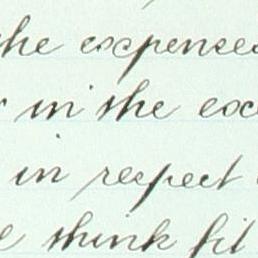 the expenses
in the exc
in respect
think fit